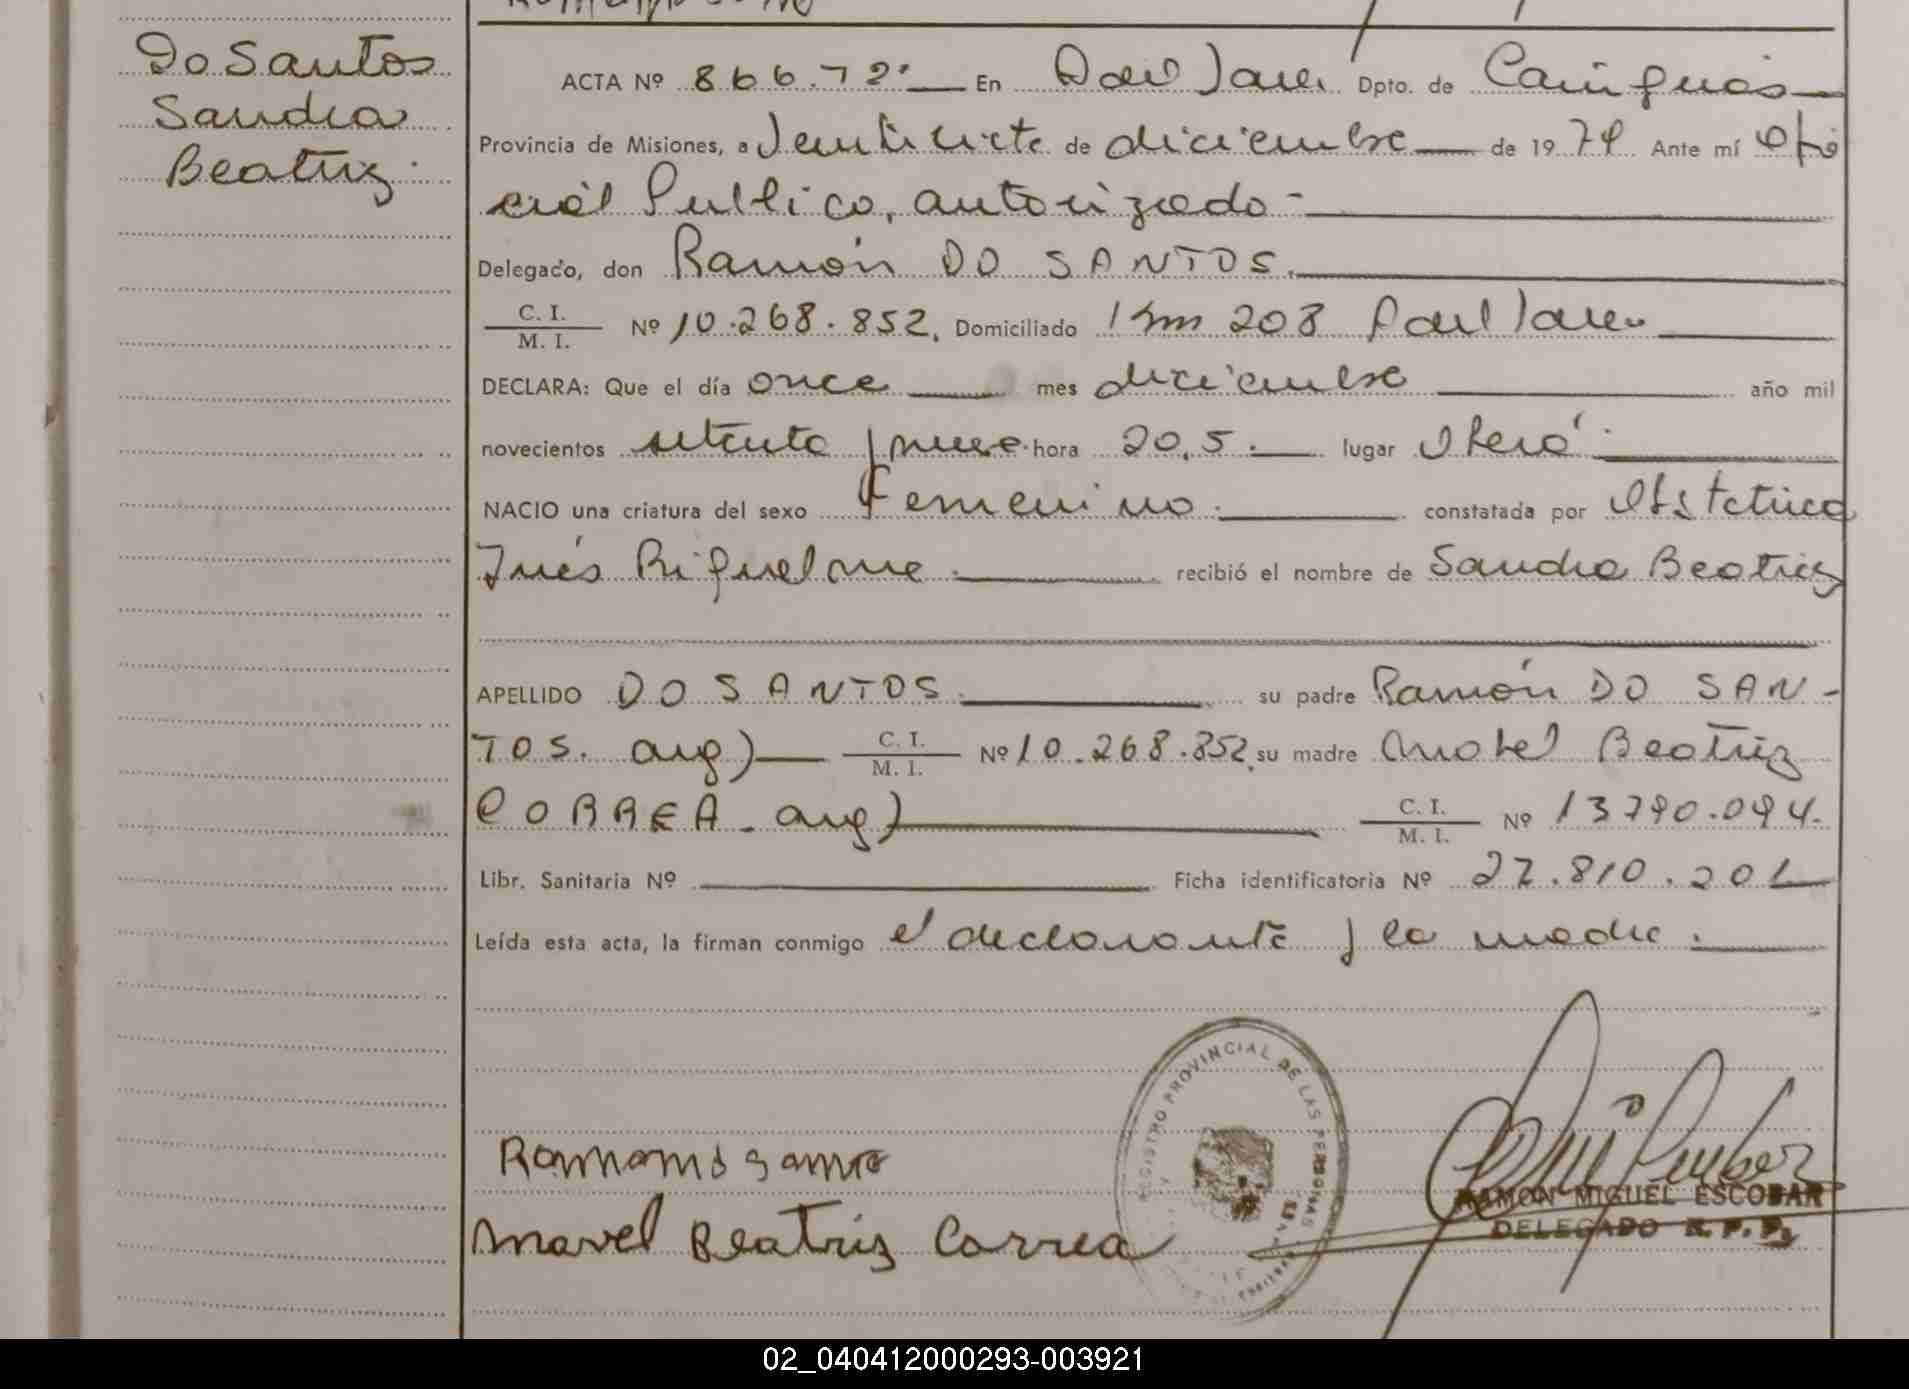 Do Santos
Sandra
Beatriz.
ACTA Nº 866.72' En Dpto. de Cainguás
Provincia de Misiones, a Veintisiete de diciembre de 1979 Ante mí Ofi
cial Público, autorizado -
Delegado, don Ramón DO SANTOS.
C. I.
M. I. Nº 10.268.852, Domiciliado Km 208
DECLARA: Que el día once mes diciembre año mil
novecientos setenta y nueve. hora 20,5. lugar Oberá.
NACIO una criatura del sexo Femenino. constatada por Obstetrica
Inés Riquelme. recibió el nombre de Sandra Beatriz
APELLIDO DO SANTOS. su padre Ramón DO SAN-
TOS. arg) C. I. M. I. Nº 10.268.852, su madre Mabel Beatriz
CORREA. arg) C. I. M. I. Nº 13790.094.
Libr. Sanitaria Nº Ficha identificatoria Nº 27.810.201
Leída esta acta, la firman conmigo el declarante y la madre.
REGISTRO PROVINCIAL DE LAS PERSONAS
Marvel Beatriz Correa
RAMON MIGUEL ESCOBAR
DELEGADO R. P. P.
02_040412000293-003921